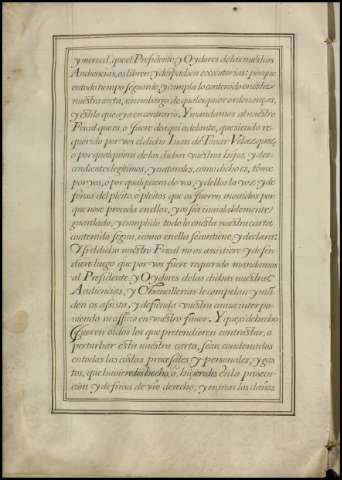 y merced, que el Presidente, y Oydores de las nuestras
Audiencias, os libren, y despachen executorias: porque
en todo tiempo se guarde, y cumpla lo contenido en esta
nuestra carta, sin embargo de qualesquier ordenanças,
y estilo que aya en contrario. Y mandamos al nuestro
Fiscal que es, o fuere de aqui adelante, que siendo re-
querido por vos el dicho Iuan de Tovar Velazquez,
o por qualquiera de los dichos vuestros hijos, y des-
cendientes legitimos, y naturales, como dicho es, tome
por vos, o por qualquiera de vos, y dellos la voz, y de-
fensa del pleito, o pleitos que os fueren movidos por
que no se proceda en ellos, y os sea inviolablemente
guardado, y cumplido todo lo en esta nuestra carta
contenido segun, y como en ella se contiene, y declara:
Y si el dicho nuestro Fiscal no os assistiere, y defen-
diere luego que por vos fuere requerido mandamos
al Presidente, y Oydores de las dichas nuestras
Audiencias, y Chancillerias le compelan, y man-
den os assista, y defienda vuestra causa interpo-
niendo su officio en vuestro favor. Y que si de hecho
fueren oidos los que pretendieren contrastar, o
perturbar esta nuestra carta, sean condenados
en todas las costas procesales, y personales, y gas-
tos, que huvieredes hecho, o hizieredes en la prosecu-
cion, y defensa de vuestro derecho, y en pena los daños